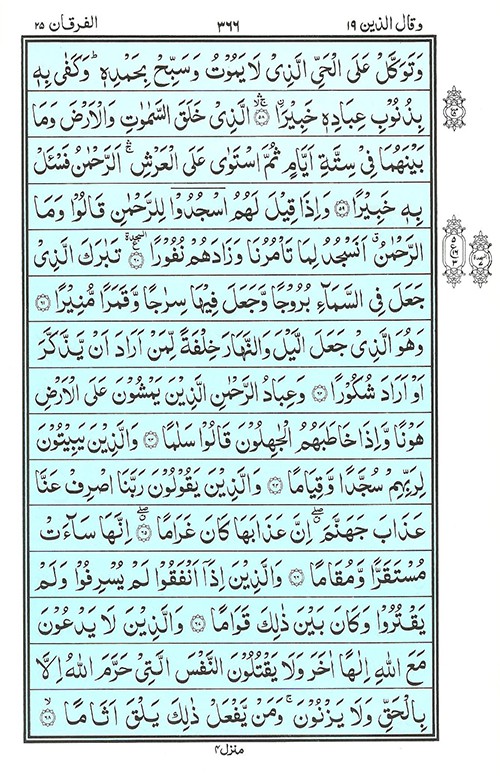 وقال الذين ١٩ ٣٦٦ الفرقان ٢٥
وَتَوَكَّلْ عَلَى الْحَيِّ الَّذِىْ لَا يَمُوْتُ وَسَبِّحْ بِحَمْدِهٖ ؕ وَكَفٰى بِهٖ
بِذُنُوْبِ عِبَادِهٖ خَبِيْرَا ۛۚ ۙ‏ ﴿۵۸﴾ اۨلَّذِىْ خَلَقَ السَّمٰوٰتِ وَالْاَرْضَ وَمَا
بَيْنَهُمَا فِىْ سِتَّةِ اَيَّامٍ ثُمَّ اسْتَوٰى عَلَى الْعَرْشِ ۛۚ اَلرَّحْمٰنُ فَسْـَٔـلْ
بِهٖ خَبِيْرًا ﴿۵۹﴾ وَاِذَا قِيْلَ لَهُمُ اسْجُدُوْا لِلرَّحْمٰنِ قَالُوْا وَمَا
الرَّحْمٰنُ ۗ اَنَسْجُدُ لِمَا تَاْمُرُنَا وَزَادَهُمْ نُفُوْرًا ۩ ﴿۶۰﴾ تَبٰرَكَ الَّذِىْ
جَعَلَ فِى السَّمَآءِ بُرُوْجًا وَّجَعَلَ فِيْهَا سِرٰجًا وَّقَمَرًا مُّنِيْرًا ﴿۶۱﴾
وَهُوَ الَّذِىْ جَعَلَ الَّيْلَ وَالنَّهَارَ خِلْفَةً لِّمَنْ اَرَادَ اَنْ يَّذَّكَّرَ
اَوْ اَرَادَ شُكُوْرًا ﴿۶۲﴾ وَعِبَادُ الرَّحْمٰنِ الَّذِيْنَ يَمْشُوْنَ عَلَى الْاَرْضِ
هَوْنًا وَّاِذَا خَاطَبَهُمُ الْجٰهِلُوْنَ قَالُوْا سَلٰمًا ﴿۶۳﴾ وَالَّذِيْنَ يَبِيْتُوْنَ
لِرَبِّهِمْ سُجَّدًا وَّقِيَامًا ﴿۶۴﴾ وَالَّذِيْنَ يَقُوْلُوْنَ رَبَّنَا اصْرِفْ عَنَّا
عَذَابَ جَهَنَّمَ ۖ اِنَّ عَذَابَهَا كَانَ غَرَامًا ۖ ﴿۶۵﴾ اِنَّهَا سَآءَتْ
مُسْتَقَرًّا وَّمُقَامًا ﴿۶۶﴾ وَالَّذِيْنَ اِذَاۤ اَنْفَقُوْا لَمْ يُسْرِفُوْا وَلَمْ
يَقْتُرُوْا وَكَانَ بَيْنَ ذٰلِكَ قَوَامًا ﴿۶۷﴾ وَالَّذِيْنَ لَا يَدْعُوْنَ
مَعَ اللّٰهِ اِلٰهًا اٰخَرَ وَلَا يَقْتُلُوْنَ النَّفْسَ الَّتِىْ حَرَّمَ اللّٰهُ اِلَّا
بِالْحَقِّ وَلَا يَزْنُوْنَ ۚ وَمَنْ يَّفْعَلْ ذٰلِكَ يَلْقَ اَثَامًا ۙ ﴿۶۸﴾
منزل ٤